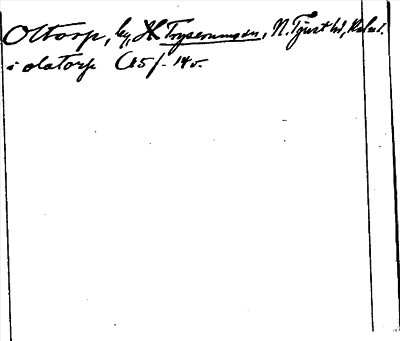 Oltorp, by, Tryserums sn, N. Tjust hd, Kalm.
i olatorp (15/- 14v.